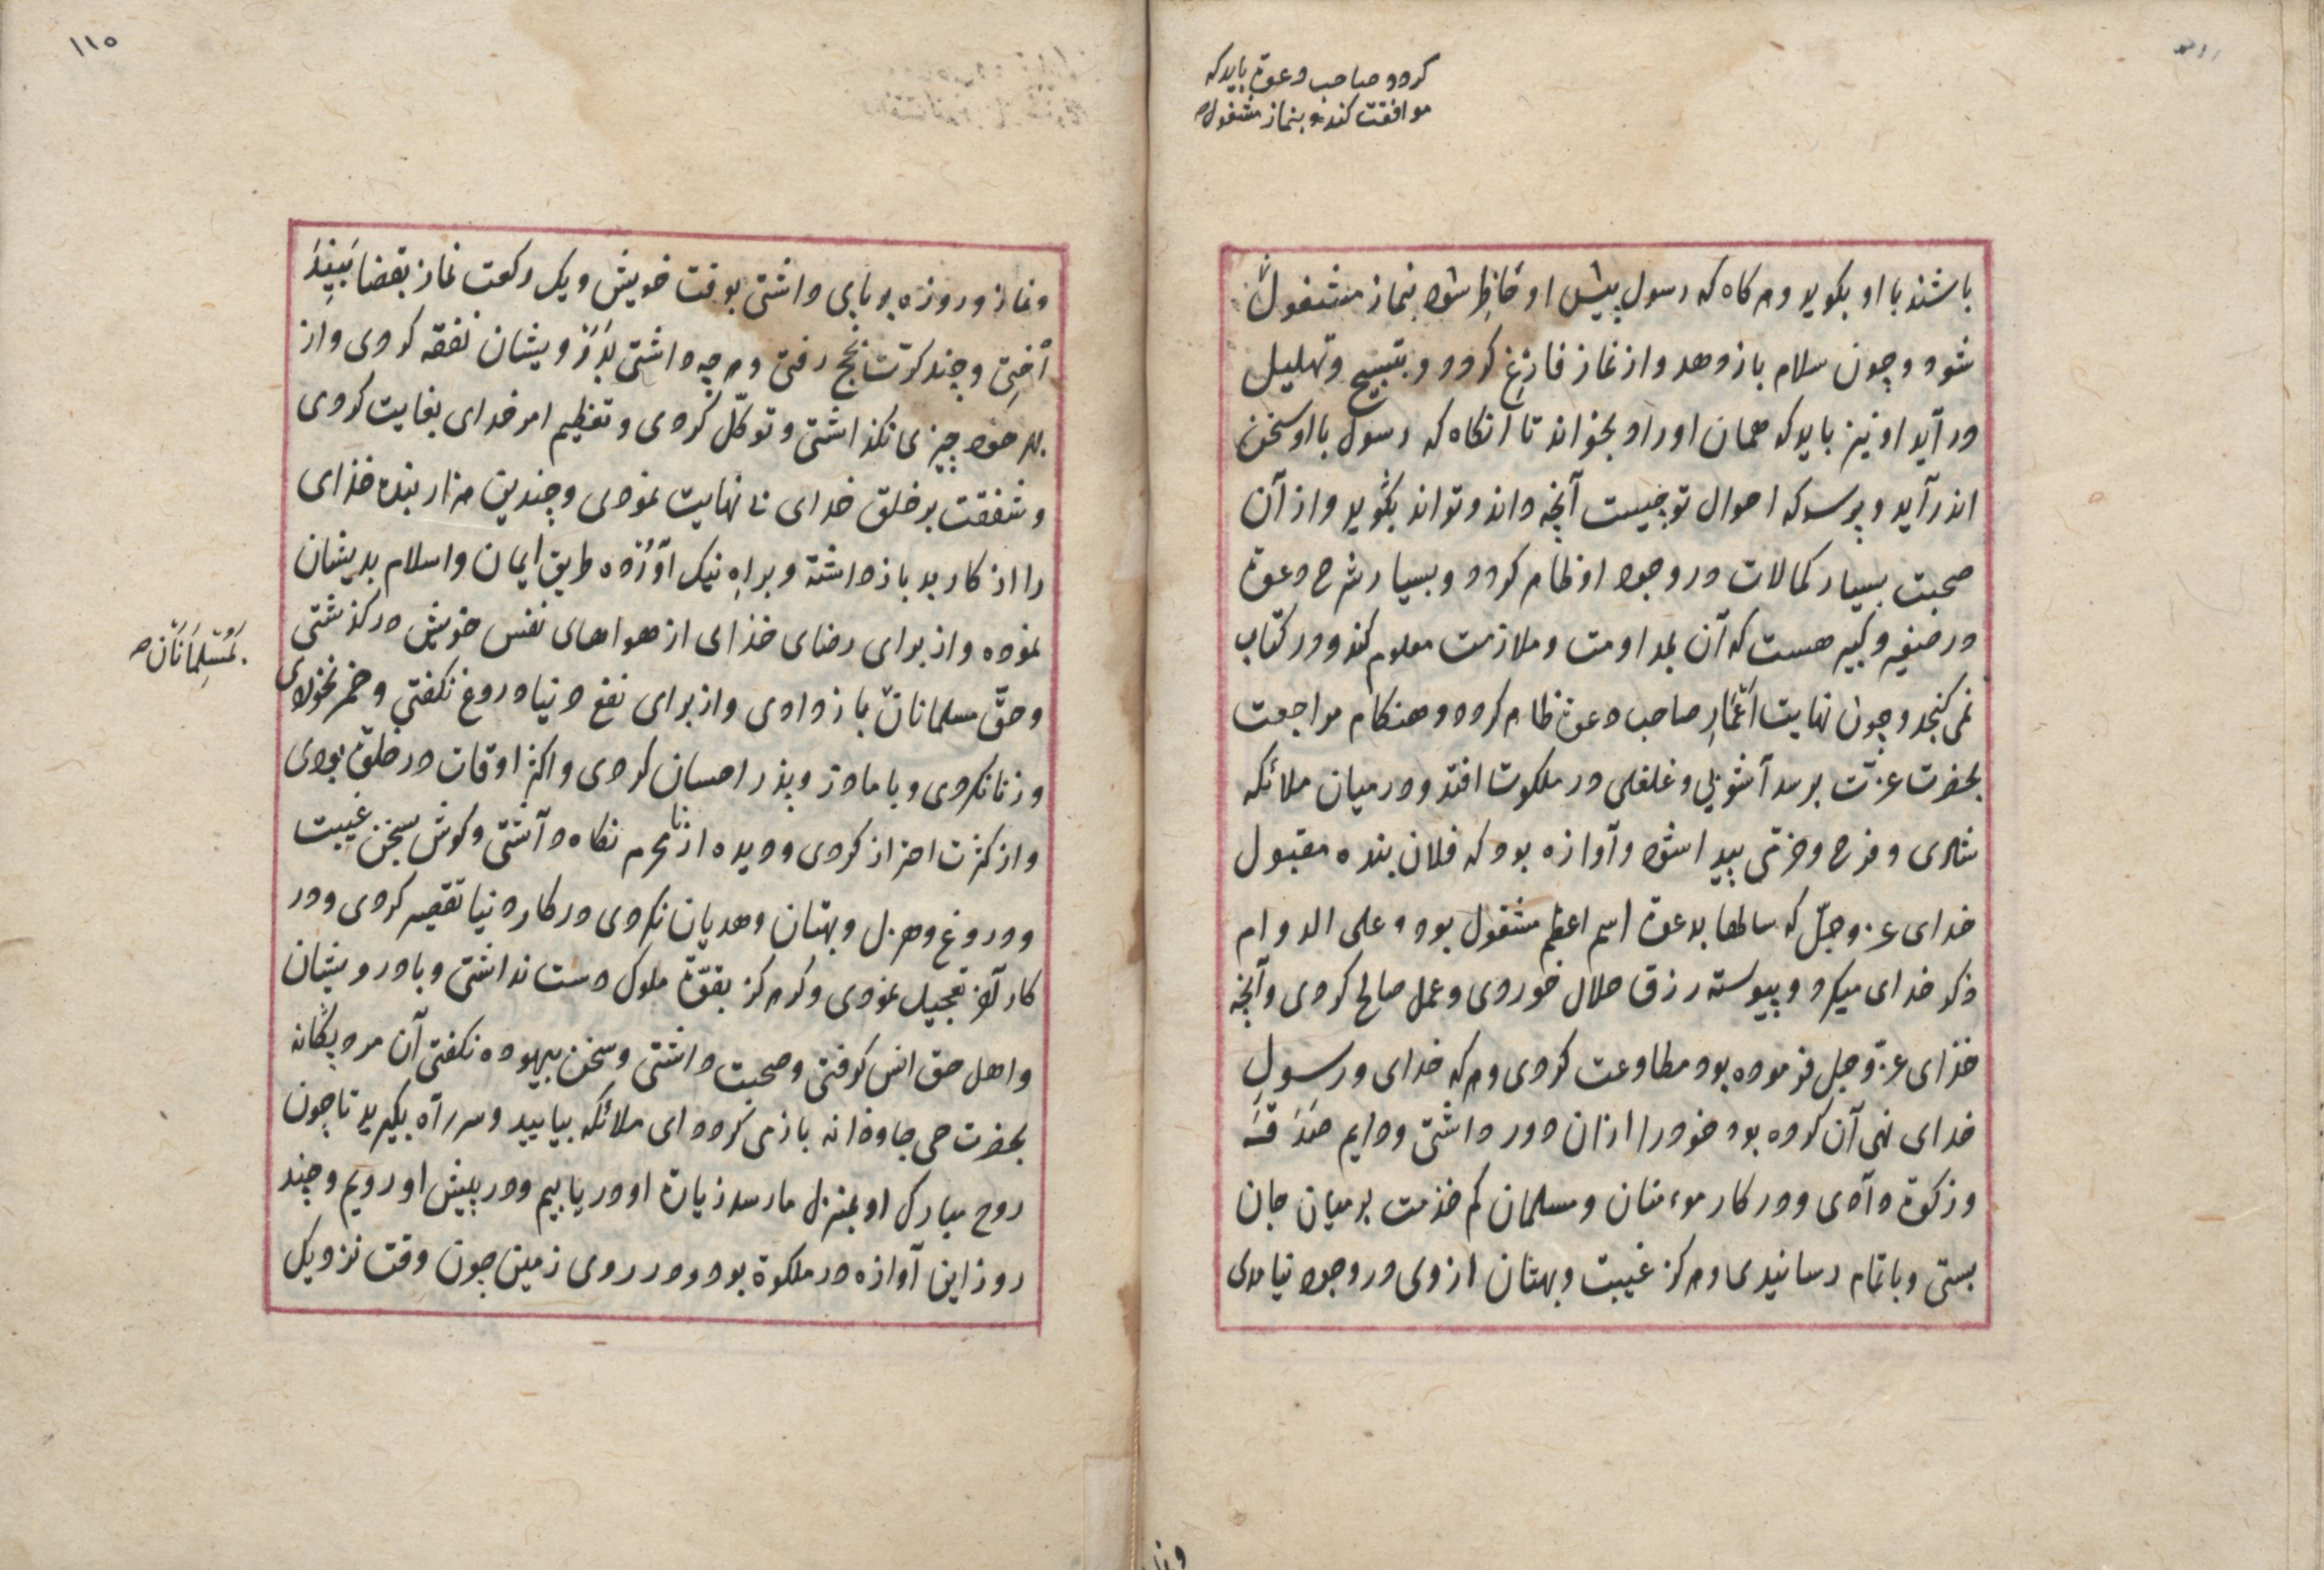 کردد و صاحب دعوة باید که
موافقت کند و بنماز مشغول
باشند با او بکوید و هرکاه که رسول پیش او حاضر شود بنماز مشغول
شود و چون سلام باز دهد و از نماز فارغ کردد و بتسبیح و تهلیل
در آید او نیز باید که همان اوراد بخواند تا آنکاه که رسول با او سخن
اندر آید و پرسد که احوال تو چیست آنچه داند و تواند بکوید و از آن
صحبت بسیار کمالات در وجود او ظاهر کردد و بسیار شرح دعوة
در صغیر و کبیر هست که آن بمداومت و ملازمت معلوم کند و در کتاب
نمی کنجد و چون نهایت اعمار صاحب دعوة ظاهر کردد و هنکام مراجعت
بحضرت عزت برسد آشوبی و غلغلی در ملکوت افتد و در میان ملائکه
شادی و فرح و خرمی پیدا شود و آوازه بود که فلان بنده مقبول
خدای عز و جل که سالها بدعوة اسم اعظم مشغول بود و علی الدوام
ذکر خدای میکرد و پیوسته رزق حلال خوردی و عمل صالح کردی و آنچه
خدای عز و جل فرموده بود مطاوعت کردی و هر که خدای و رسول
خدای نهی آن کرده بود خود را از ان دور داشتی و دایم صدقه
و زکوة دادی و در کار موءمنان و مسلمان کم خدمت بر میان جان
بستی و باتمام رسانیدی و هرکز غیبت و بهتان از وی در وجود نیامدی
١١٥
و نماز و روزه بر پای داشتی بوقت خویش و یک رکعت نماز بقضا
و چند کرت بحج رفتی و هر چه داشتی بدرویشان نفقه کردی و از
بهر خود چیزی نکذاشتی و توکل کردی و تعظیم امر خدای بغایت کردی
و شفقت بر خلق خدای بی نهایت نمودی و چندین هزار بنده خدای
را از کار بد باز داشته و براه نیک آورده طریق ایمان و اسلام بدیشان
نموده و از برای رضای خدای از هواهای نفس خویش در کذشتی
و حق مسلمانان باز دادی و از برای نفع دنیا دروغ نکفتی و خمر نخوردی
بمسلمانان
و زنا نکردی و با مادر و پدر احسان کردی و اکثر اوقات در خلوة بودی
و از کثرت احتراز کردی و دیده از نامحرم نکاه داشتی و کوش بسخن غیبت
و دروغ و هزل و بهتان و هدیان نکردی در کار دنیا تقصیر کردی و در
کار آخرت تعجیل نمودی و هرکز بقوة ملوک دست نداشتی و با درویشان
و اهل حق انس کرفتی و صحبت داشتی و سخن بیهوده نکفتی آن مرد یکانه
بحضرت حی جاودانه باز می کردد ای ملائکه بیایید و سر راه بکیرید تا چون
روح مبارک او بمنزل ما رسد زیارة او در یابیم و در پیش او رویم و چند
روز این آوازه در ملکوة بود و در روی زمین چون وقت نزدیک